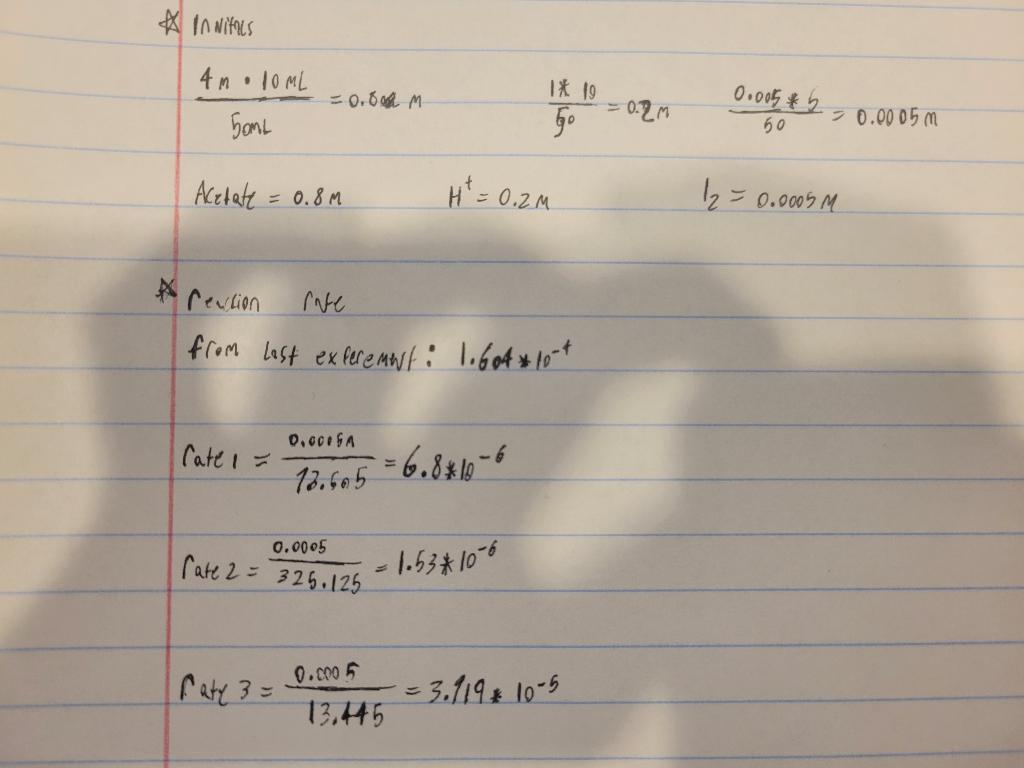 ☆ Initials
4M • 10ML / 50ML = 0.8 M    1* 10 / 50 = 0.2M    0.005 * 5 / 50 = 0.0005M
Acetate = 0.8M    H⁺ = 0.2M    I₂ = 0.0005M
☆ reaction rate
from last experement: 1.604*10⁻⁴
rate 1 = 0.0005M / 73.505 = 6.8*10⁻⁶
rate 2 = 0.0005 / 325.125 = 1.53*10⁻⁶
rate 3 = 0.0005 / 13.445 = 3.719* 10⁻⁵